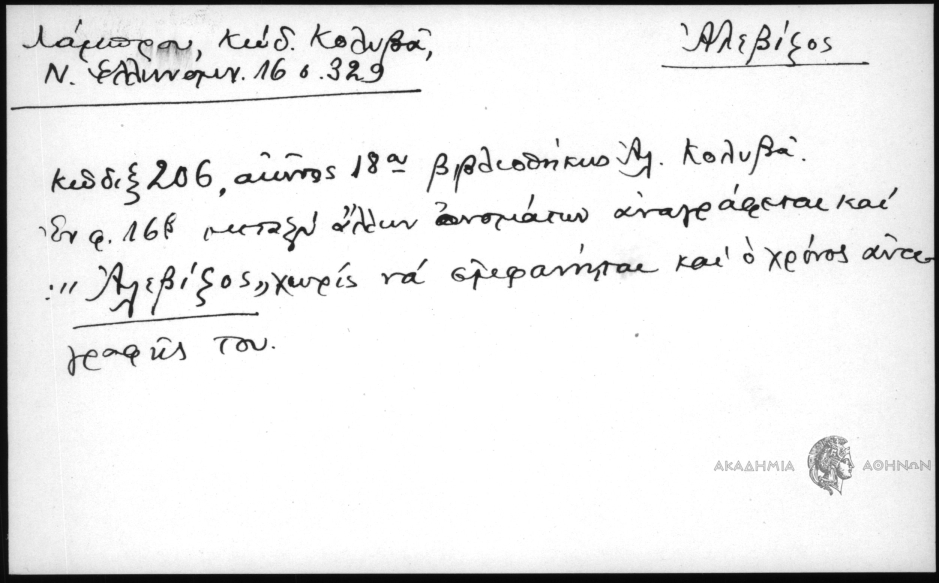 Λάμπρου, Κώδ. Κολυβᾶ,
Ν. Ἑλληνομν. 16 σ. 329
Ἀλεβίζος
Κῶδιξ 206, αἰῶνος 18ου βιβλιοθήκης Ἀλ. Κολυβᾶ.
Ἐν φ. 16β μεταξύ ἄλλων ὀνομάτων ἀναγράφεται καί
: "Ἀλεβίζος" χωρίς νά ἐμφανίηται καί ὁ χρόνος ἀντι-
γραφῆς του.
ΑΚΑΔΗΜΙΑ ΑΘΗΝΩΝ